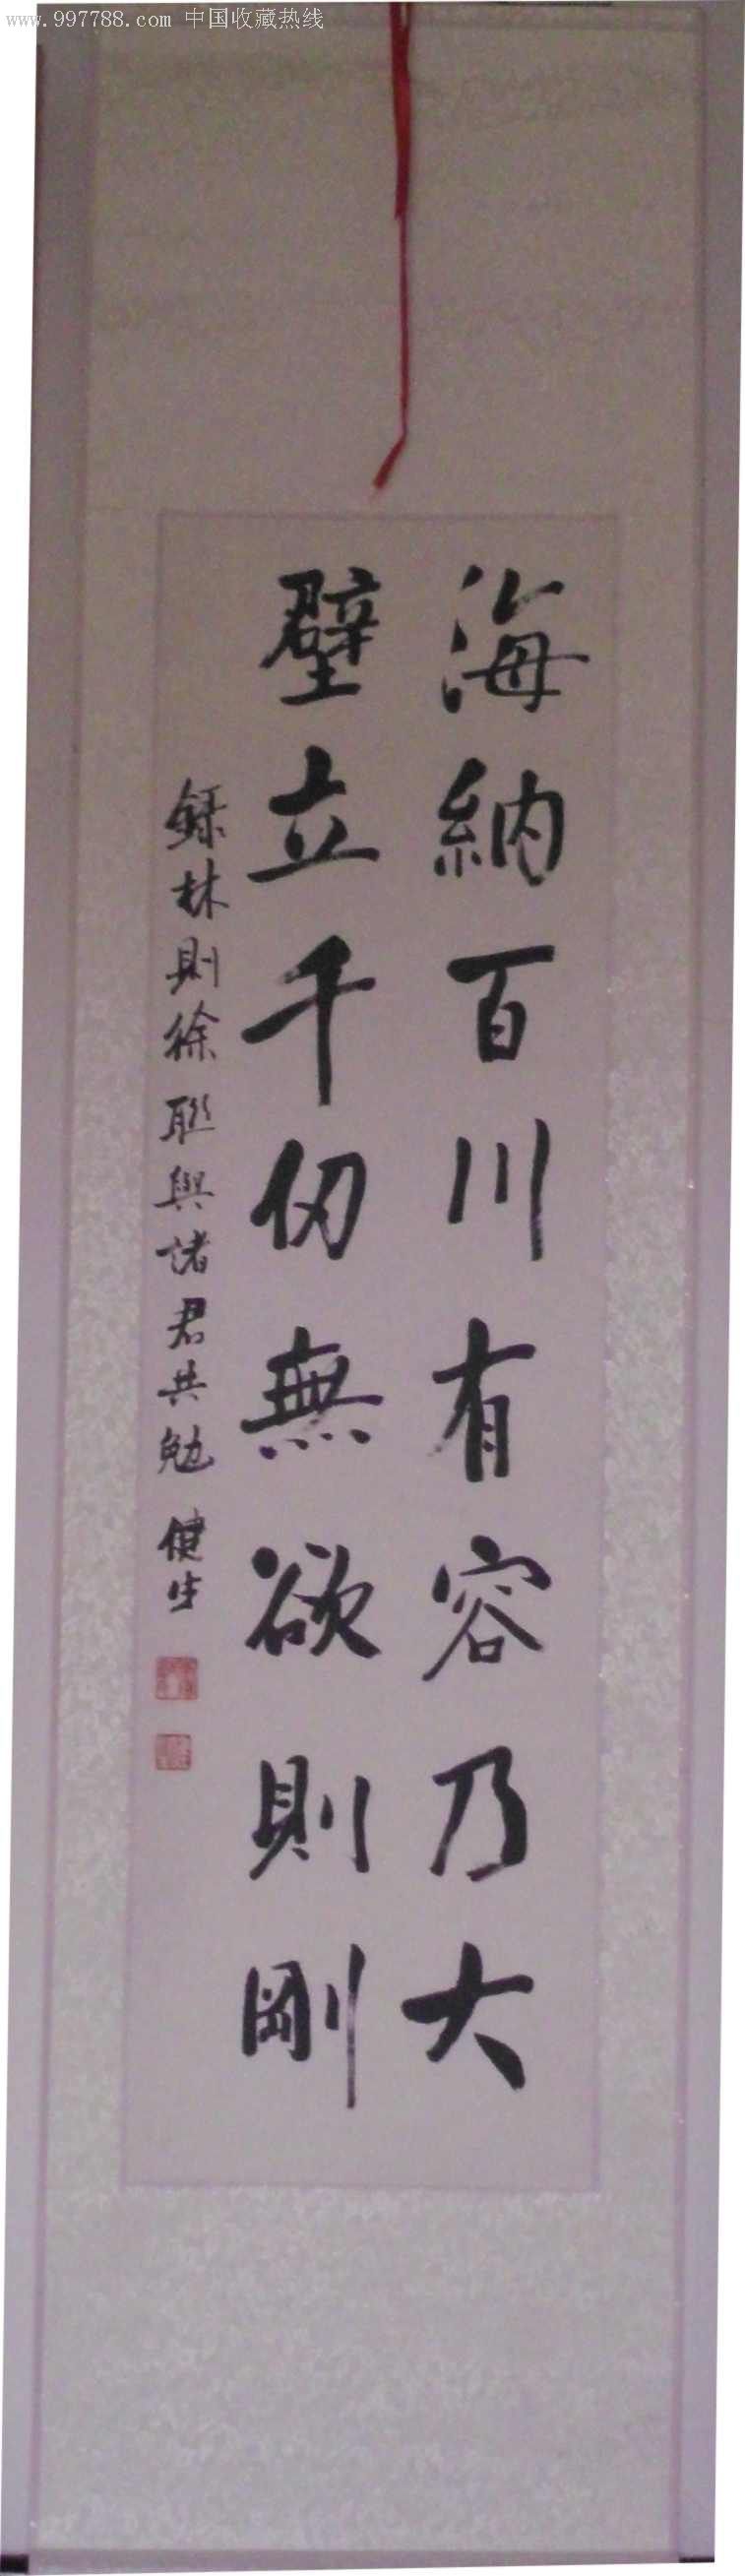 www.997788.com 中国收藏热线
海納百川有容乃大
壁立千仞無欲則剛
録林則徐聯與諸君共勉 健生